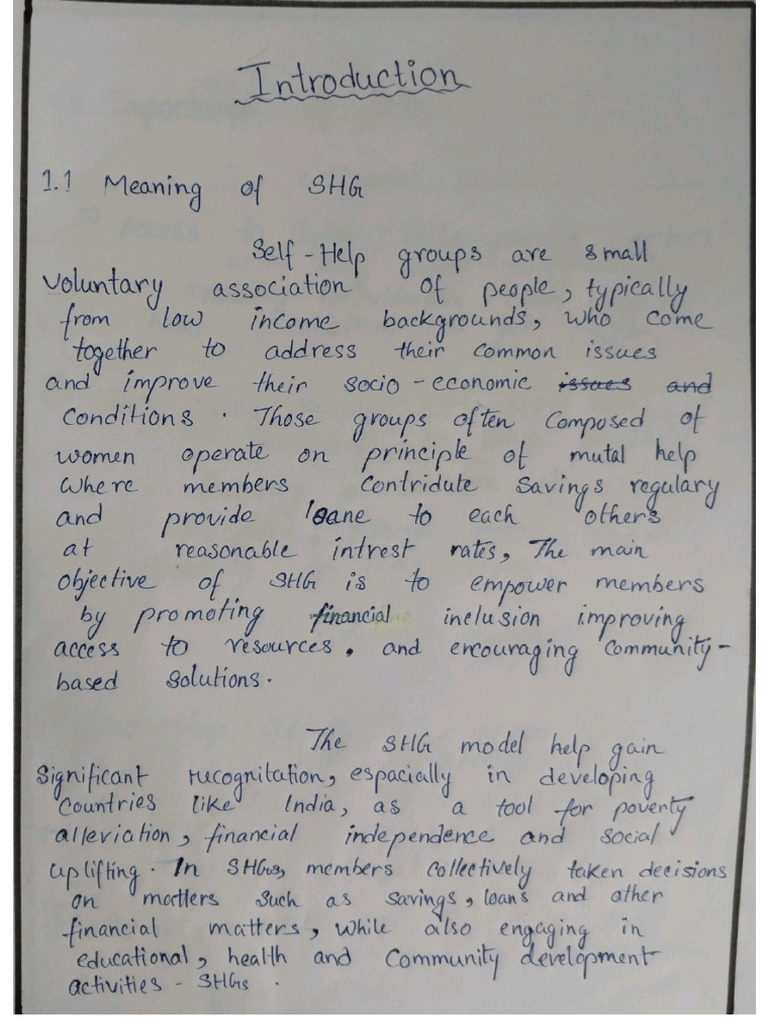 Introduction
1.1 Meaning of SHG
Self-Help groups are small
voluntary association of people, typically
from low income backgrounds, who come
together to address their common issues
and improve their socio-economic issues and
conditions. Those groups often composed of
women operate on principle of mutal help
where members contridute savings regulary
and provide loane to each others
at reasonable intrest rates, The main
objective of SHG is to empower members
by promoting financial inclusion improving
access to resources, and encouraging community-
based solutions.
The SHG model help gain
significant recognitation, espacially in developing
countries like India, as a tool for poverty
alleviation, financial independence and social
uplifting. In SHGs, members collectively taken decisions
on mortlers such as savings, loans and other
financial matters, while also engaging in
educational, health and community development
activities - SHGs.